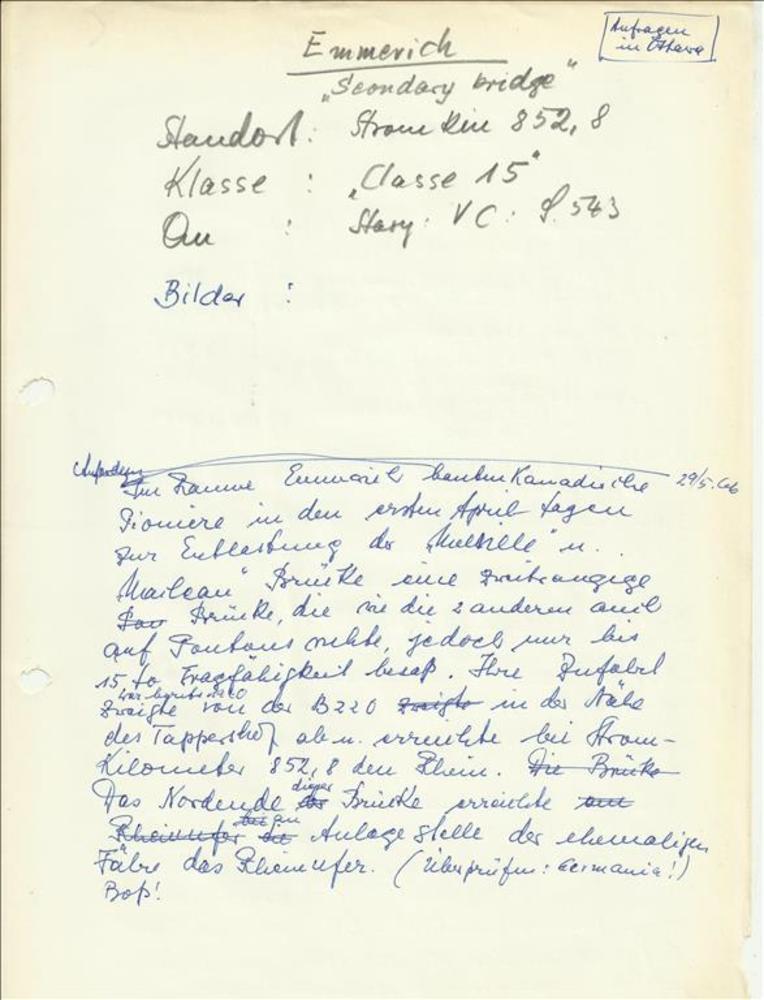 Anfragen
in Ottawa
Emmerich
"Scondary bridge"
Standort: Strom Km 852,8
Klasse : "Classe 15"
Qu : Stacy: VC: S. 543
Bilder :
Im Raume Emmerich bauten Kanadische 29/5.
Pioniere in den ersten April tagen
zur Entlastung der "Melville" u.
"Mailean" Brücke eine zweitrangige
Brücke, die wie die 2 anderen auch
auf Pontons ruhte, jedoch nur bis
15 to Tragfähigkeit besaß. Ihre Zufahrt
zweigte von der B220 zweigte in der Nähe
des Tappershof ab u. erreichte bei Strom-
Kilometer 852,8 den Rhein. Die Brücke
Das Nordende dieser Brücke erreichte
Rheinufer die an Anlagestelle der ehemaligen
Fähre das Rheinufer. (Überprüfen: Germania!)
Boß!